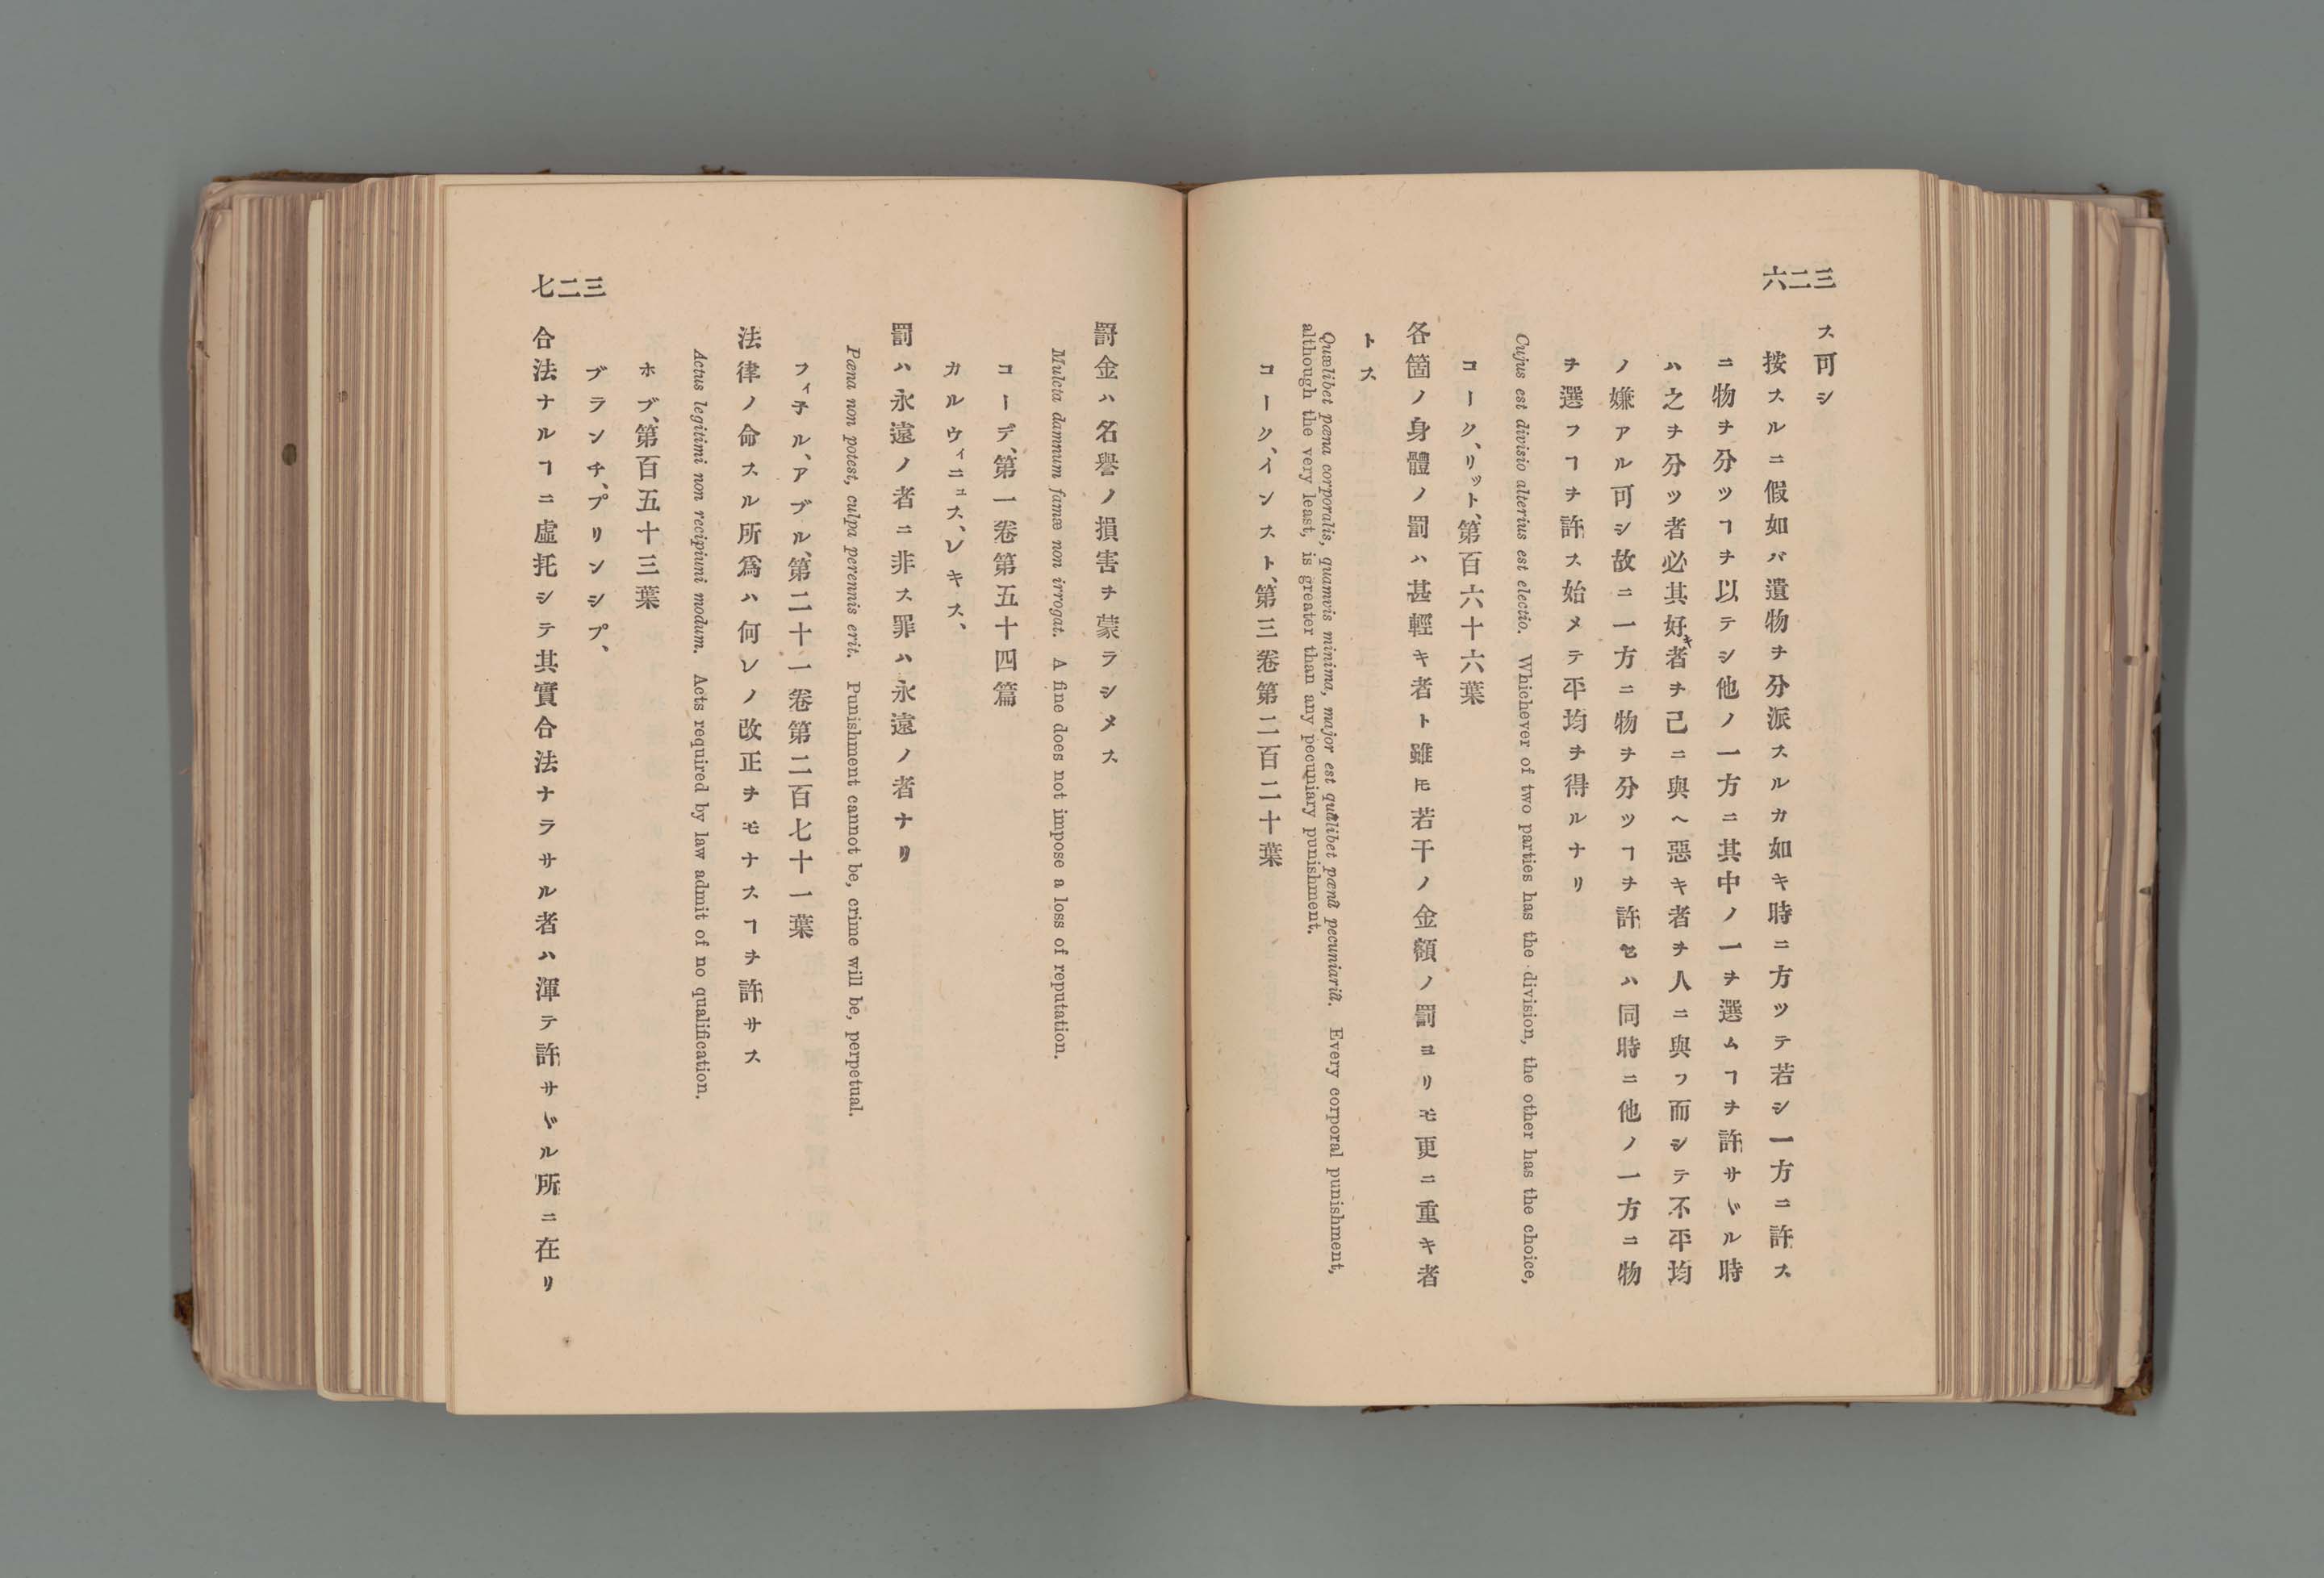 三二六
ス可シ
按スルニ假如バ遺物ヲ分派スルカ如キ時ニ方ツテ若シ一方ニ許ス
ニ物ヲ分ツヿヲ以テシ他ノ一方ニ其中ノ一ヲ選ムヿヲ許サヾル時
ハ之ヲ分ツ者必其好キ者ヲ己ニ與ヘ惡キ者ヲ人ニ與フ而シテ不平均
ノ嫌アル可シ故ニ一方ニ物ヲ分ツヿヲ許セハ同時ニ他ノ一方ニ物
ヲ選フヿヲ許ス始メテ平均ヲ得ルナリ
Cujus est divisio alterius est electio. Whichever of two parties has the division, the other has the choice,
コーク、リット、第百六十六葉
各箇ノ身體ノ罰ハ甚輕キ者ト雖𪜈若干ノ金額ノ罰ヨリモ更ニ重キ者
トス
Quælibet pœna corporalis, quamvis minima, major est quâlibet pœnâ pecuniariâ. Every corporal punishment,
although the very least, is greater than any pecuniary punishment.
コーク、インスト、第三卷第二百二十葉
罸金ハ名譽ノ損害ヲ蒙ラシメス
Mulcta damnum famæ non irrogat. A fine does not impose a loss of reputation.
コーデ、第一卷第五十四篇
カルウィニュス、レキス、
罰ハ永遠ノ者ニ非ス罪ハ永遠ノ者ナリ
Pœna non potest, culpa perennis erit. Punishment cannot be, crime will be, perpetual.
フィ子ル、アブル、第二十一卷第二百七十一葉
法律ノ命スル所爲ハ何レノ改正ヲモナスヿヲ許サス
Actus legitimi non recipiuni modum. Acts required by law admit of no qualification.
ホブ、第百五十三葉
ブランチ、プリンシプ、
合法ナルヿニ虛托シテ其實合法ナラサル者ハ渾テ許サヾル所ニ在リ
三二七